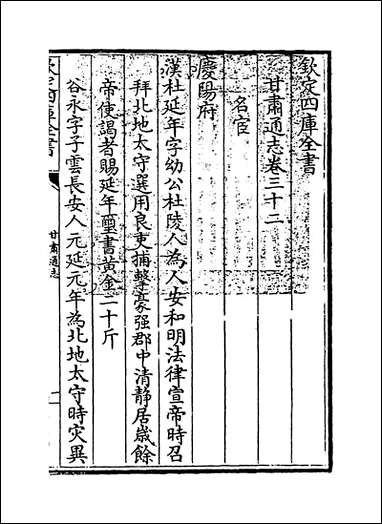 欽定四庫全書
甘肅通志卷三十二
名宦
慶陽府
漢杜延年字幼公杜陵人為人安和明法律宣帝時召
拜北地太守選用良吏捕擊豪强郡中清靜居歲餘
帝使謁者賜延年璽書黃金二十斤
谷永字子雲長安人元延元年為北地太守時災異
欽定四庫全書
甘肅通志